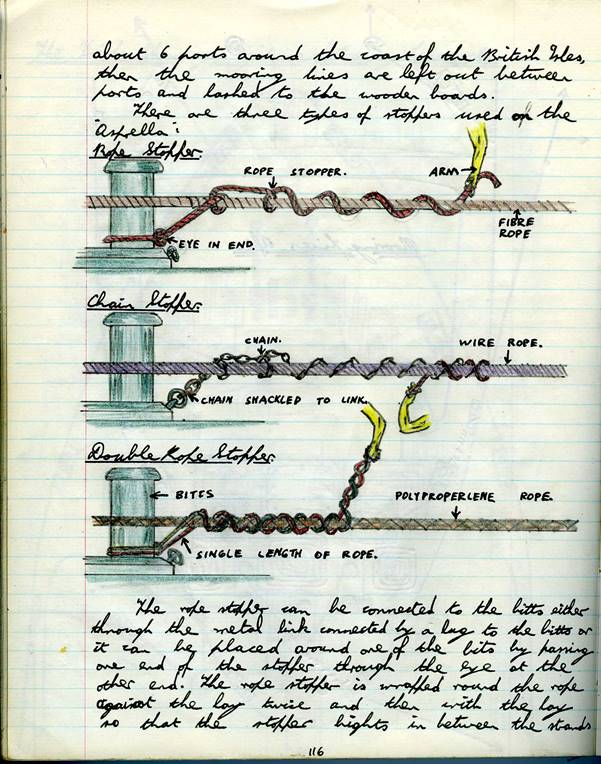 about 6 ports around the coast of the British Isles,
then the mooring lines are left out between
ports and lashed to the wooden boards.
There are three types of stoppers used on the
"Aspella":
Rope Stopper.
ROPE STOPPER.
ARM
FIBRE
ROPE
EYE IN END.
Chain Stopper.
CHAIN.
WIRE ROPE.
CHAIN SHACKLED TO LINK.
Double Rope Stopper.
BITES
POLYPROPERLENE ROPE.
SINGLE LENGTH OF ROPE.
The rope stopper can be connected to the bitts either
through the metal link connected by a lug to the bitts or
it can be placed around one of the bits by passing
one end of the stopper through the eye at the
other end. The rope stopper is wrapped round the rope
against the lay twice and then with the lay
so that the stopper bights in between the strands
116